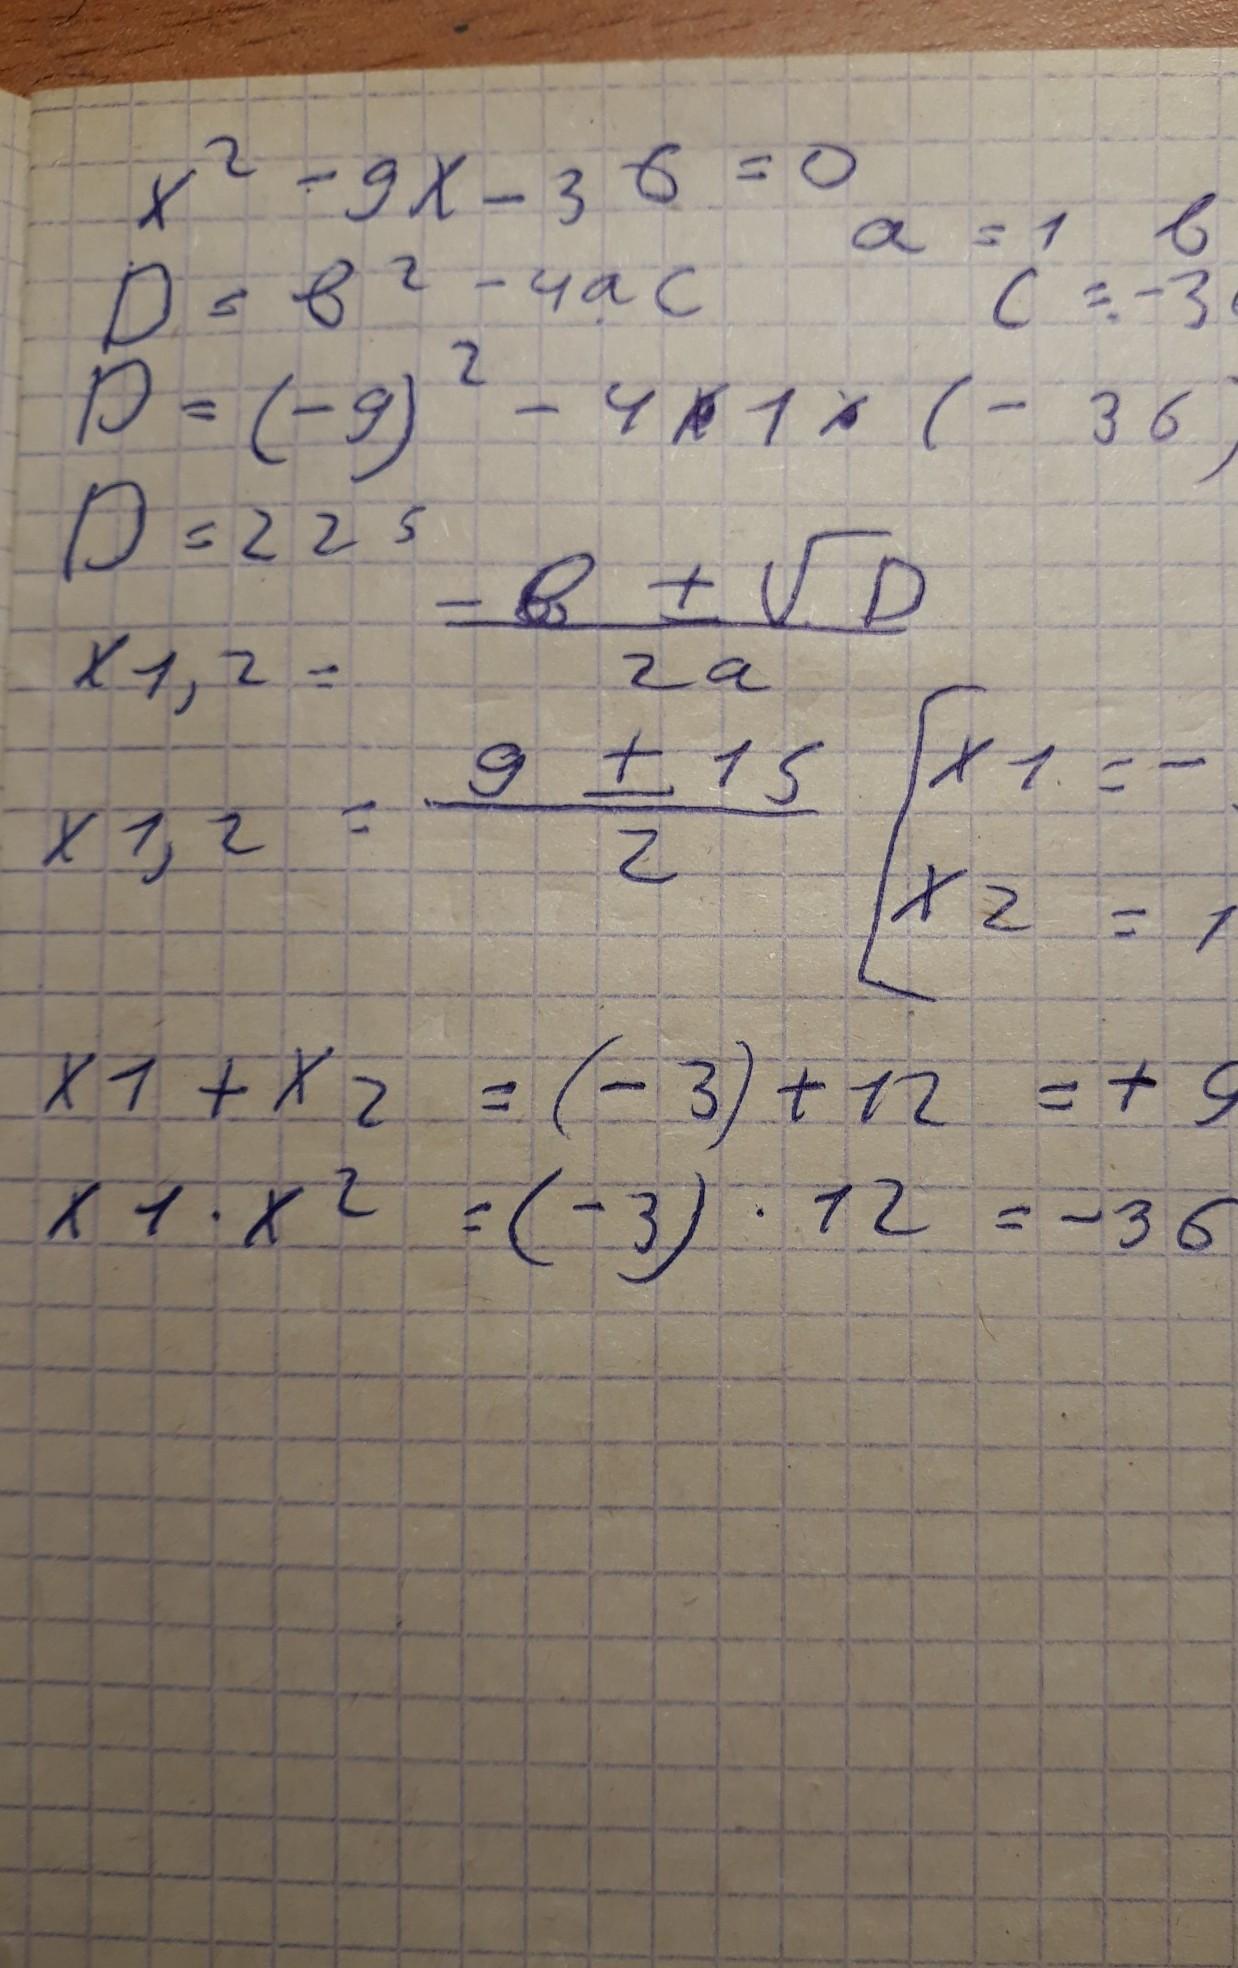 x² - 9x - 36 = 0
a = 1 b
D = b² - 4ac
c = -3
D = (-9)² - 4 × 1 × (- 36)
D = 225
x1,2 = -b ± √D / 2a
x1,2 = 9 ± 15 / 2
[ x1 = -
x2 = 1
x1 + x2 = (-3) + 12 = + 9
x1 · x2 = (-3) · 12 = -36